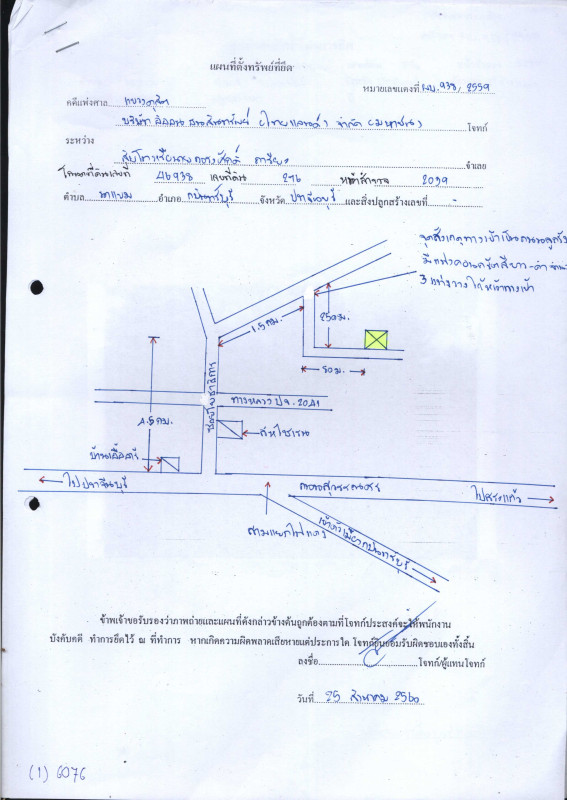 แผนที่ตั้งทรัพย์ที่ยึด
หมายเลขแดงที่ ผบ.938/2559
คดีแพ่งศาล แขวงดุสิต
บริษัท จำกัด (มหาชน) โจทก์
ระหว่าง
จำเลย
โฉนดที่ดินเลขที่ 46938 เลขที่ดิน 276 หน้าสำรวจ 2039
ตำบล นาแขม อำเภอ กบินทร์บุรี จังหวัด ปราจีนบุรี และสิ่งปลูกสร้างเลขที่ -
จุดสังเกตทางเข้าเป็นถนนลูกรัง
มีแท่งคอนกรีตสีขาว-ดำ
3 แท่งวางไว้หน้าทางเข้า
1.5 กม.
250 ม.
50 ม.
4.5 กม.
ทางหลวง ปจ. 2041
สหไชเรน
บ้านเอื้ออารี
ไปปราจีนบุรี
ถนนสุวรรณศร
ไปสระแก้ว
สามแยกไฟแดง
เข้าตัวเมืองกบินทร์บุรี
ข้าพเจ้าขอรับรองว่าภาพถ่ายและแผนที่ดังกล่าวข้างต้นถูกต้องตามที่โจทก์ประสงค์จะให้พนักงาน
บังคับคดี ทำการยึดไว้ ณ ที่ทำการ หากเกิดความผิดพลาดเสียหายแต่ประการใด โจทก์ยินยอมรับผิดชอบเองทั้งสิ้น
ลงชื่อ โจทก์/ผู้แทนโจทก์
วันที่ 25 สิงหาคม 2560
(1) 6076